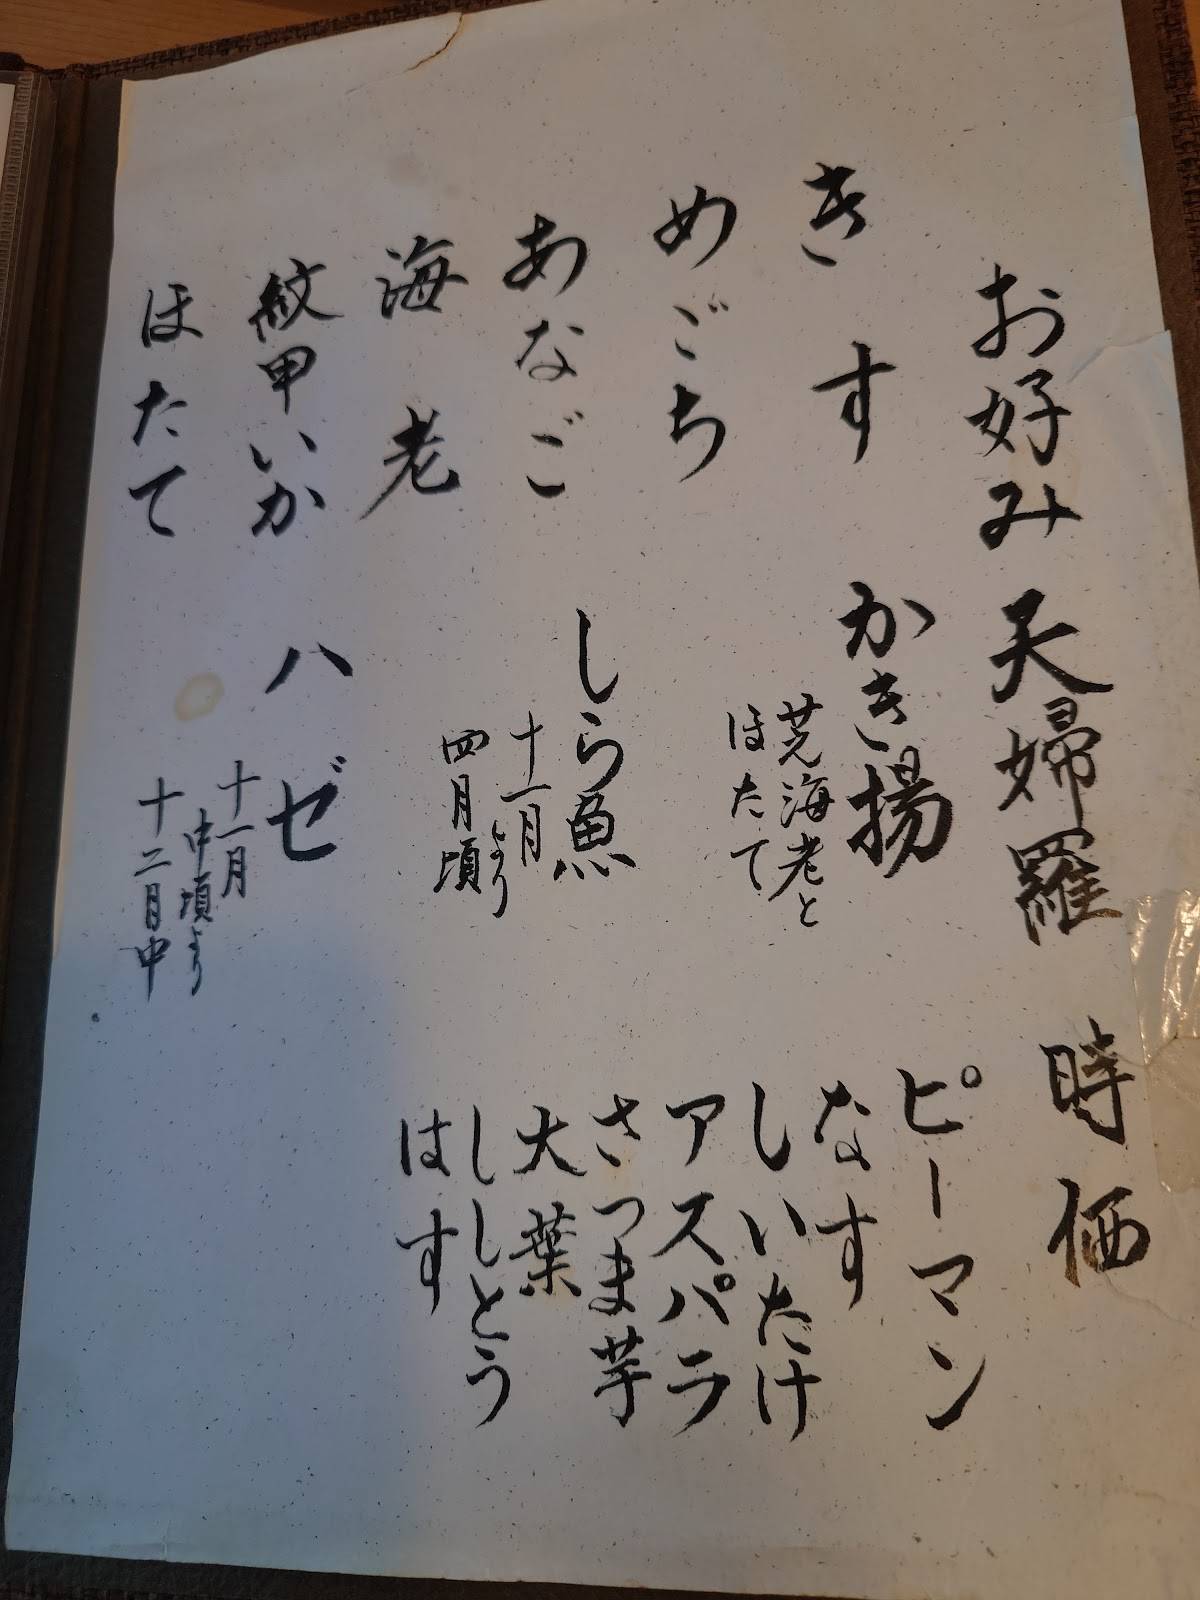 お好み天婦羅 時価
きす
めごち
あなご
海老
紋甲いか
ほたて
かき揚
芝海老と
ほたて
しら魚
十一月より
四月頃
ハゼ
十一月
中頃より
十二月中
ピーマン
なす
しいたけ
アスパラ
さつま芋
大葉
ししとう
はす